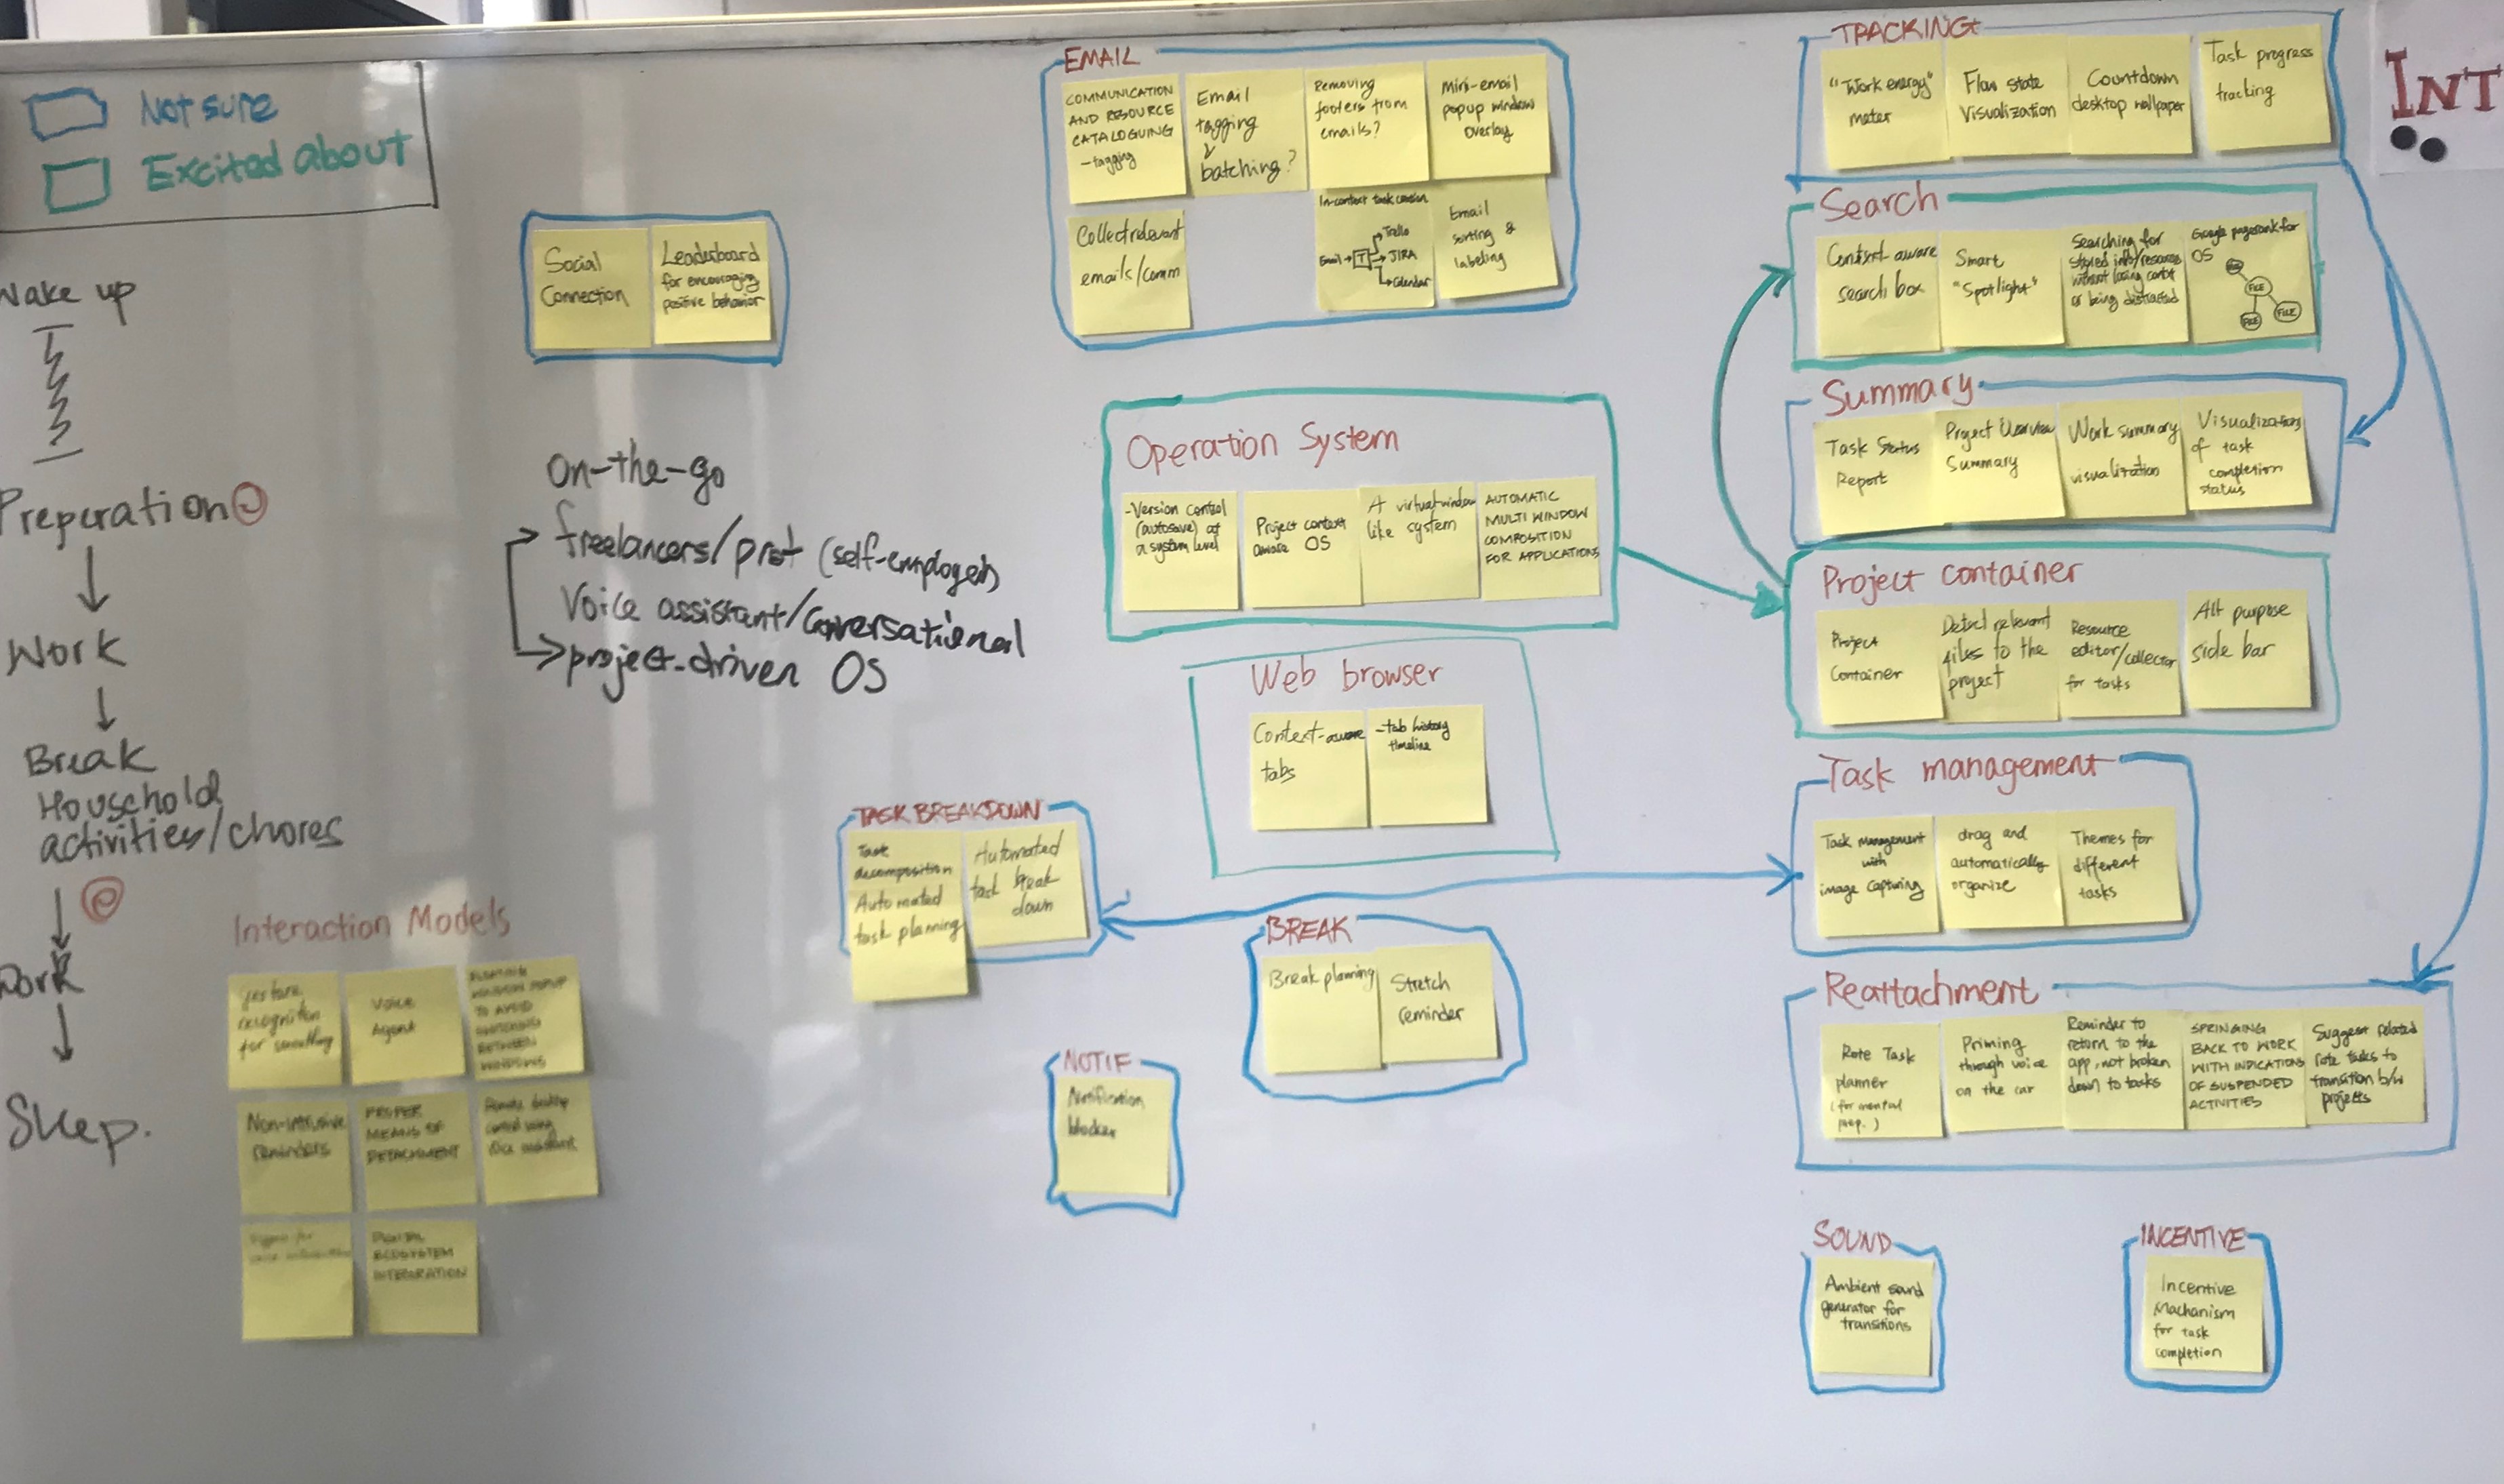 Not sure
Excited about
Wake up
Preperation
Work
Break
Household
activities/chores
Work
Sleep.
Interaction Models
gesture
recognition
for something
Voice
Agent
FLOATING
WINDOW POPUP
TO AVOID
SWITCHING
BETWEEN
WINDOWS
Non-intrusive
reminders
PROPER
MEANS OF
DETACHMENT
Remote desktop
control using
voice assistant
DIGITAL
ECOSYSTEM
INTEGRATION
Social
Connection
Leaderboard
for encouraging
positive behavior
On-the-go
freelancers/prof (self-employed)
Voice assistant/Conversational
project-driven OS
EMAIL
COMMUNICATION
AND RESOURCE
CATALOGUING
-tagging
Email
tagging
&
batching?
Removing
footers from
emails?
Mini-email
popup window
overlay
Collect relevant
emails/comm
In-context task creation
Email → T
Trello
JIRA
Calendar
Email
sorting &
labeling
Operation System
-Version control
(autosave) at
a system level
Project context
aware OS
A virtual window
like system
AUTOMATIC
MULTI WINDOW
COMPOSITION
FOR APPLICATIONS
Web browser
Context-aware
tabs
-tab history
timeline
TASK BREAKDOWN
Task
decomposition
Automated
task planning
Automated
task break
down
BREAK
Break planning
Stretch
reminder
NOTIF
Notification
blocker
TRACKING
"Work energy"
meter
Flow state
Visualization
Countdown
desktop wallpaper
Task progress
tracking
Search
Context aware
search box
Smart
"Spotlight"
Searching for
stored info/resources
without losing context
or being distracted
Google pagerank for
OS
FILE
FILE
FILE
Summary
Task Status
Report
Project Overview
Summary
Work summary
visualization
Visualizations
of task
completion
status
Project container
Project
Container
Detect relevant
files to the
project
Resource
editor/collector
for tasks
All purpose
side bar
Task management
Task Management
with
image capturing
drag and
automatically
organize
Themes for
different
tasks
Reattachment
Rote Task
planner
(for mental
prep.)
Priming
through voice
on the car
Reminder to
return to the
app, not broken
down to tasks
SPRINGING
BACK TO WORK
WITH INDICATIONS
OF SUSPENDED
ACTIVITIES
Suggest related
rote tasks to
transition b/w
projects
SOUND
Ambient sound
generator for
transitions
INCENTIVE
Incentive
Mechanism
for task
completion
INT